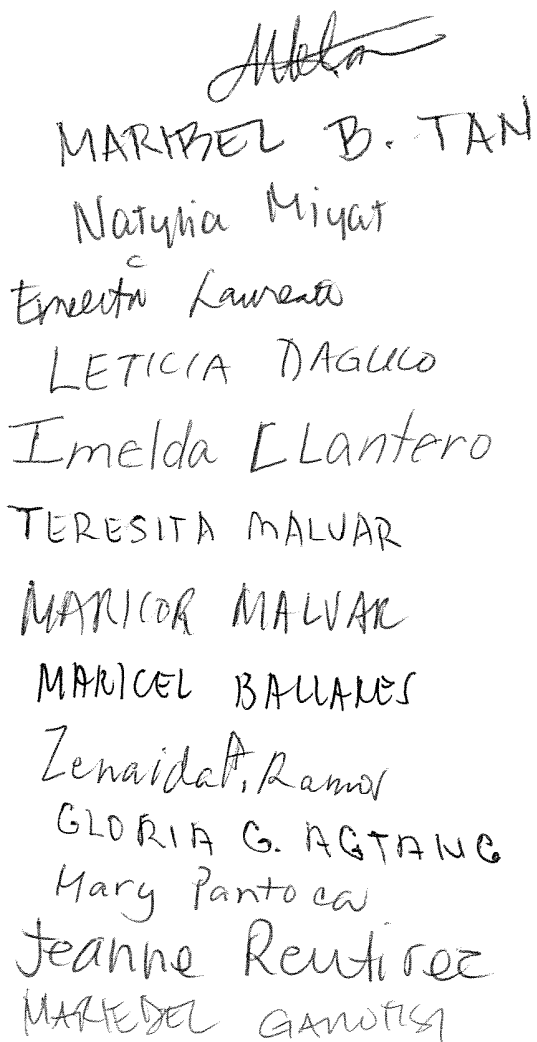 MARIBEL B. TAN
Natylia Miyat
LETICIA DAGUCO
Imelda LLantero
TERESITA MALVAR
MARICOR MALVAR
MARICEL BALLARES
Zenaida A. Ramos
GLORIA G. AGTANG
Mary Pantoca
Jeanne Reutirez
MARIEDEL